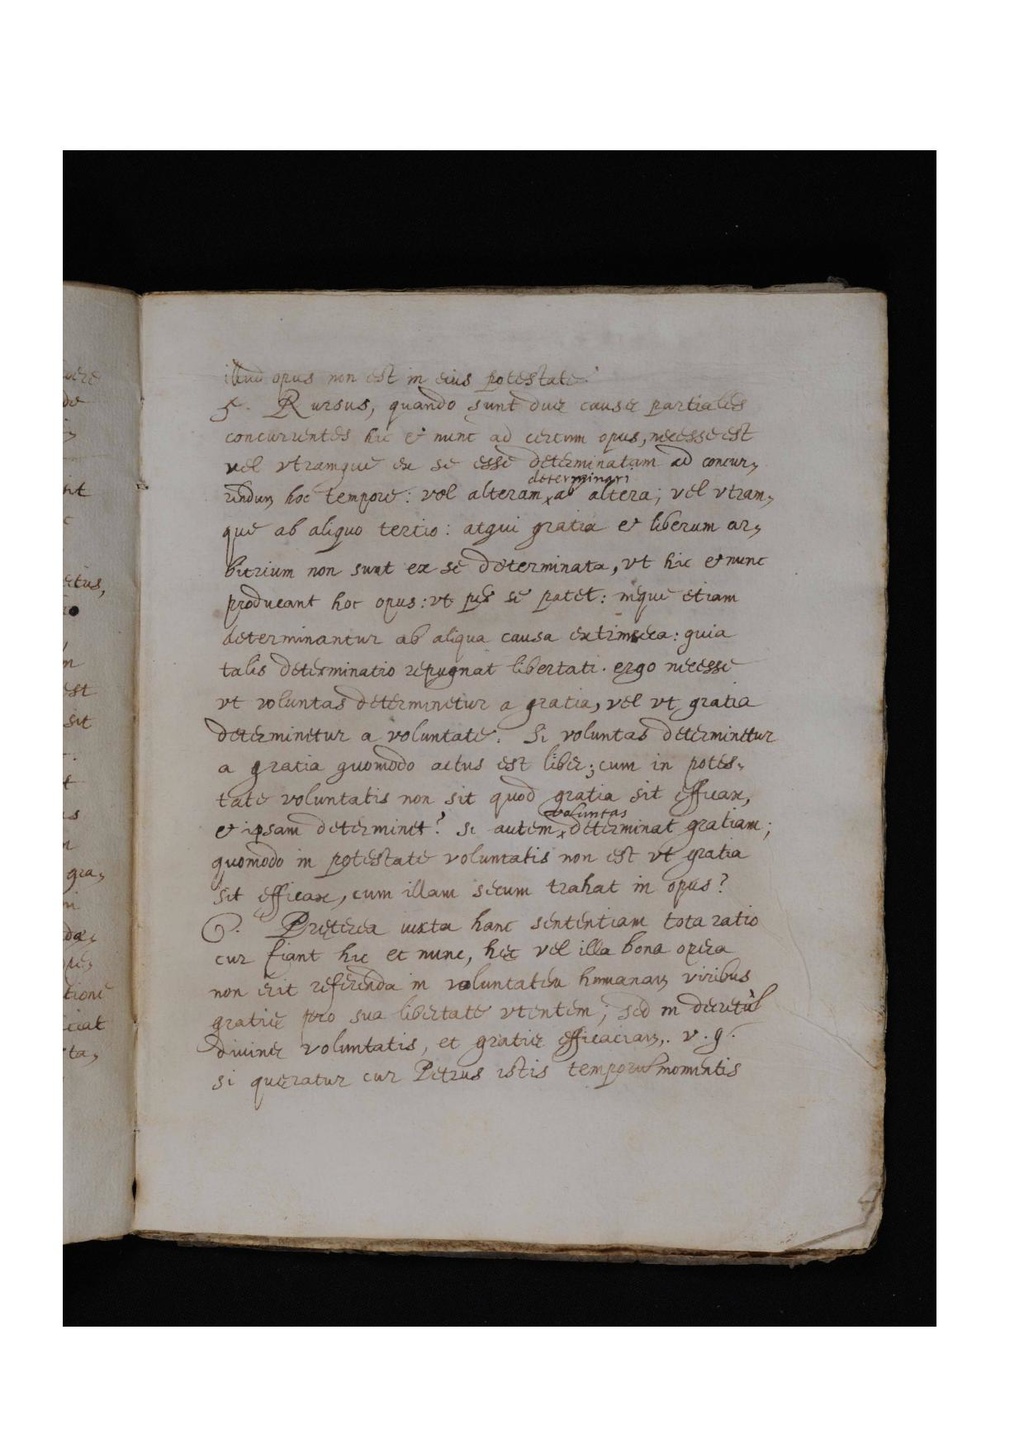 illud opus non est in eius potestate.
5. Rursus, quando sunt duæ causæ partiales
concurrentes hic & nunc ad certum opus, necesse est
vel vtramque ex se esse determinatam ad concur,
rendum hoc tempore: vel alteram determinari ab altera; vel vtram,
que ab aliquo tertio: atqui gratia & liberum ar,
bitrium non sunt ex se determinata, vt hic & nunc
producant hoc opus: vt per se patet: neque etiam
determinantur ab aliqua causa extrinseca: quia
talis determinatio repugnat libertati. ergo necesse
vt voluntas determinetur a gratia, vel vt gratia
determinetur a voluntate. Si voluntas determinetur
a gratia quomodo actus est liber; cum in potes,
tate voluntatis non sit quod gratia sit efficax,
& ipsam determinet? Si autem voluntas determinat gratiam;
quomodo in potestate voluntatis non est vt gratia
sit efficax, cum illam secum trahat in opus?
6. Prȩterea iuxta hanc sententiam tota ratio
cur fiant hic et nunc, hæc vel illa bona opera
non erit referenda in voluntatem humanam viribus
gratiæ pro sua libertate vtentem; sed in decretum
diuinæ voluntatis, et gratiæ efficaciam. v.g.
si quæratur cur Petrus istis temporis momentis